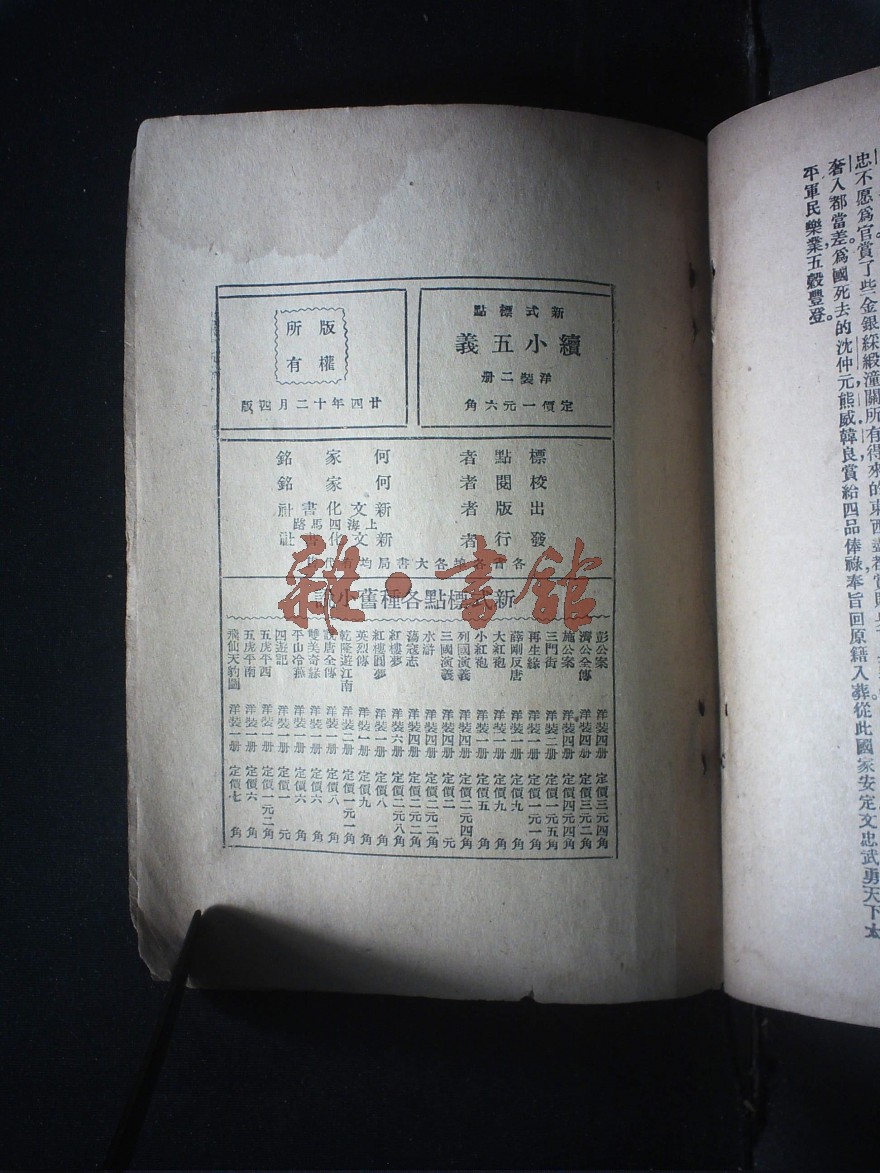 忠不愿為官賞了些金銀綵緞潼關所有得來的東西盡都賞
奢入都當差。為國死去的沈仲元熊威韓良賞給四品俸祿奉旨回原籍入葬從此國家安定文忠武勇天下太
平軍民樂業五穀豐登。
新式標點
續小五義
洋裝二册
定價一元六角
版權
所有
廿四年十二月四版
標點者 何家銘
校閱者 何家銘
出版者 新文化書社
上海四馬路
發行者 新文化書社
各省各埠各大書局均有代售
新式標點各種舊小說
彭公案 洋裝四册 定價三元四角
濟公全傳 洋裝四册 定價三元二角
施公案 洋裝四册 定價四元四角
三門街 洋裝二册 定價一元五角
再生緣 洋裝二册 定價一元一角
薛剛反唐 洋裝一册 定價九角
大紅袍 洋裝一册 定價九角
小紅袍 洋裝一册 定價五角
列國演義 洋裝四册 定價二元四角
三國演義 洋裝四册 定價二元
水滸 洋裝四册 定價二元二角
蕩寇志 洋裝四册 定價二元二角
紅樓夢 洋裝六册 定價二元八角
紅樓圓夢 洋裝一册 定價八角
英烈傳 洋裝一册 定價九角
乾隆遊江南 洋裝二册 定價一元一角
說唐全傳 洋裝一册 定價八角
雙美奇緣 洋裝一册 定價六角
平山冷燕 洋裝一册 定價六角
四遊記 洋裝一册 定價一元
五虎平西 洋裝一册 定價一元二角
五虎平南 洋裝一册 定價六角
飛仙天豹圖 洋裝一册 定價七角
雜·書館